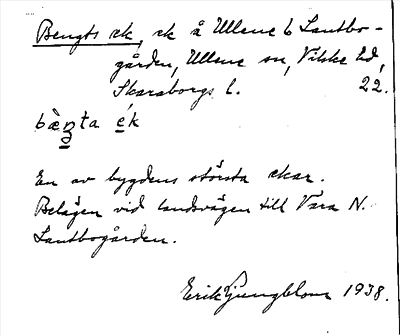 Bengts ek, ek å Ullene 6 Lantbo-
gården, Ullene sn, Vilske hd,
Skaraborgs l. 22.
bæ̀ŋta e̱k
En av bygdens största ekar.
Belägen vid landsvägen till Vara N.
Lantbogården.
Erik Ljungblom 1938.